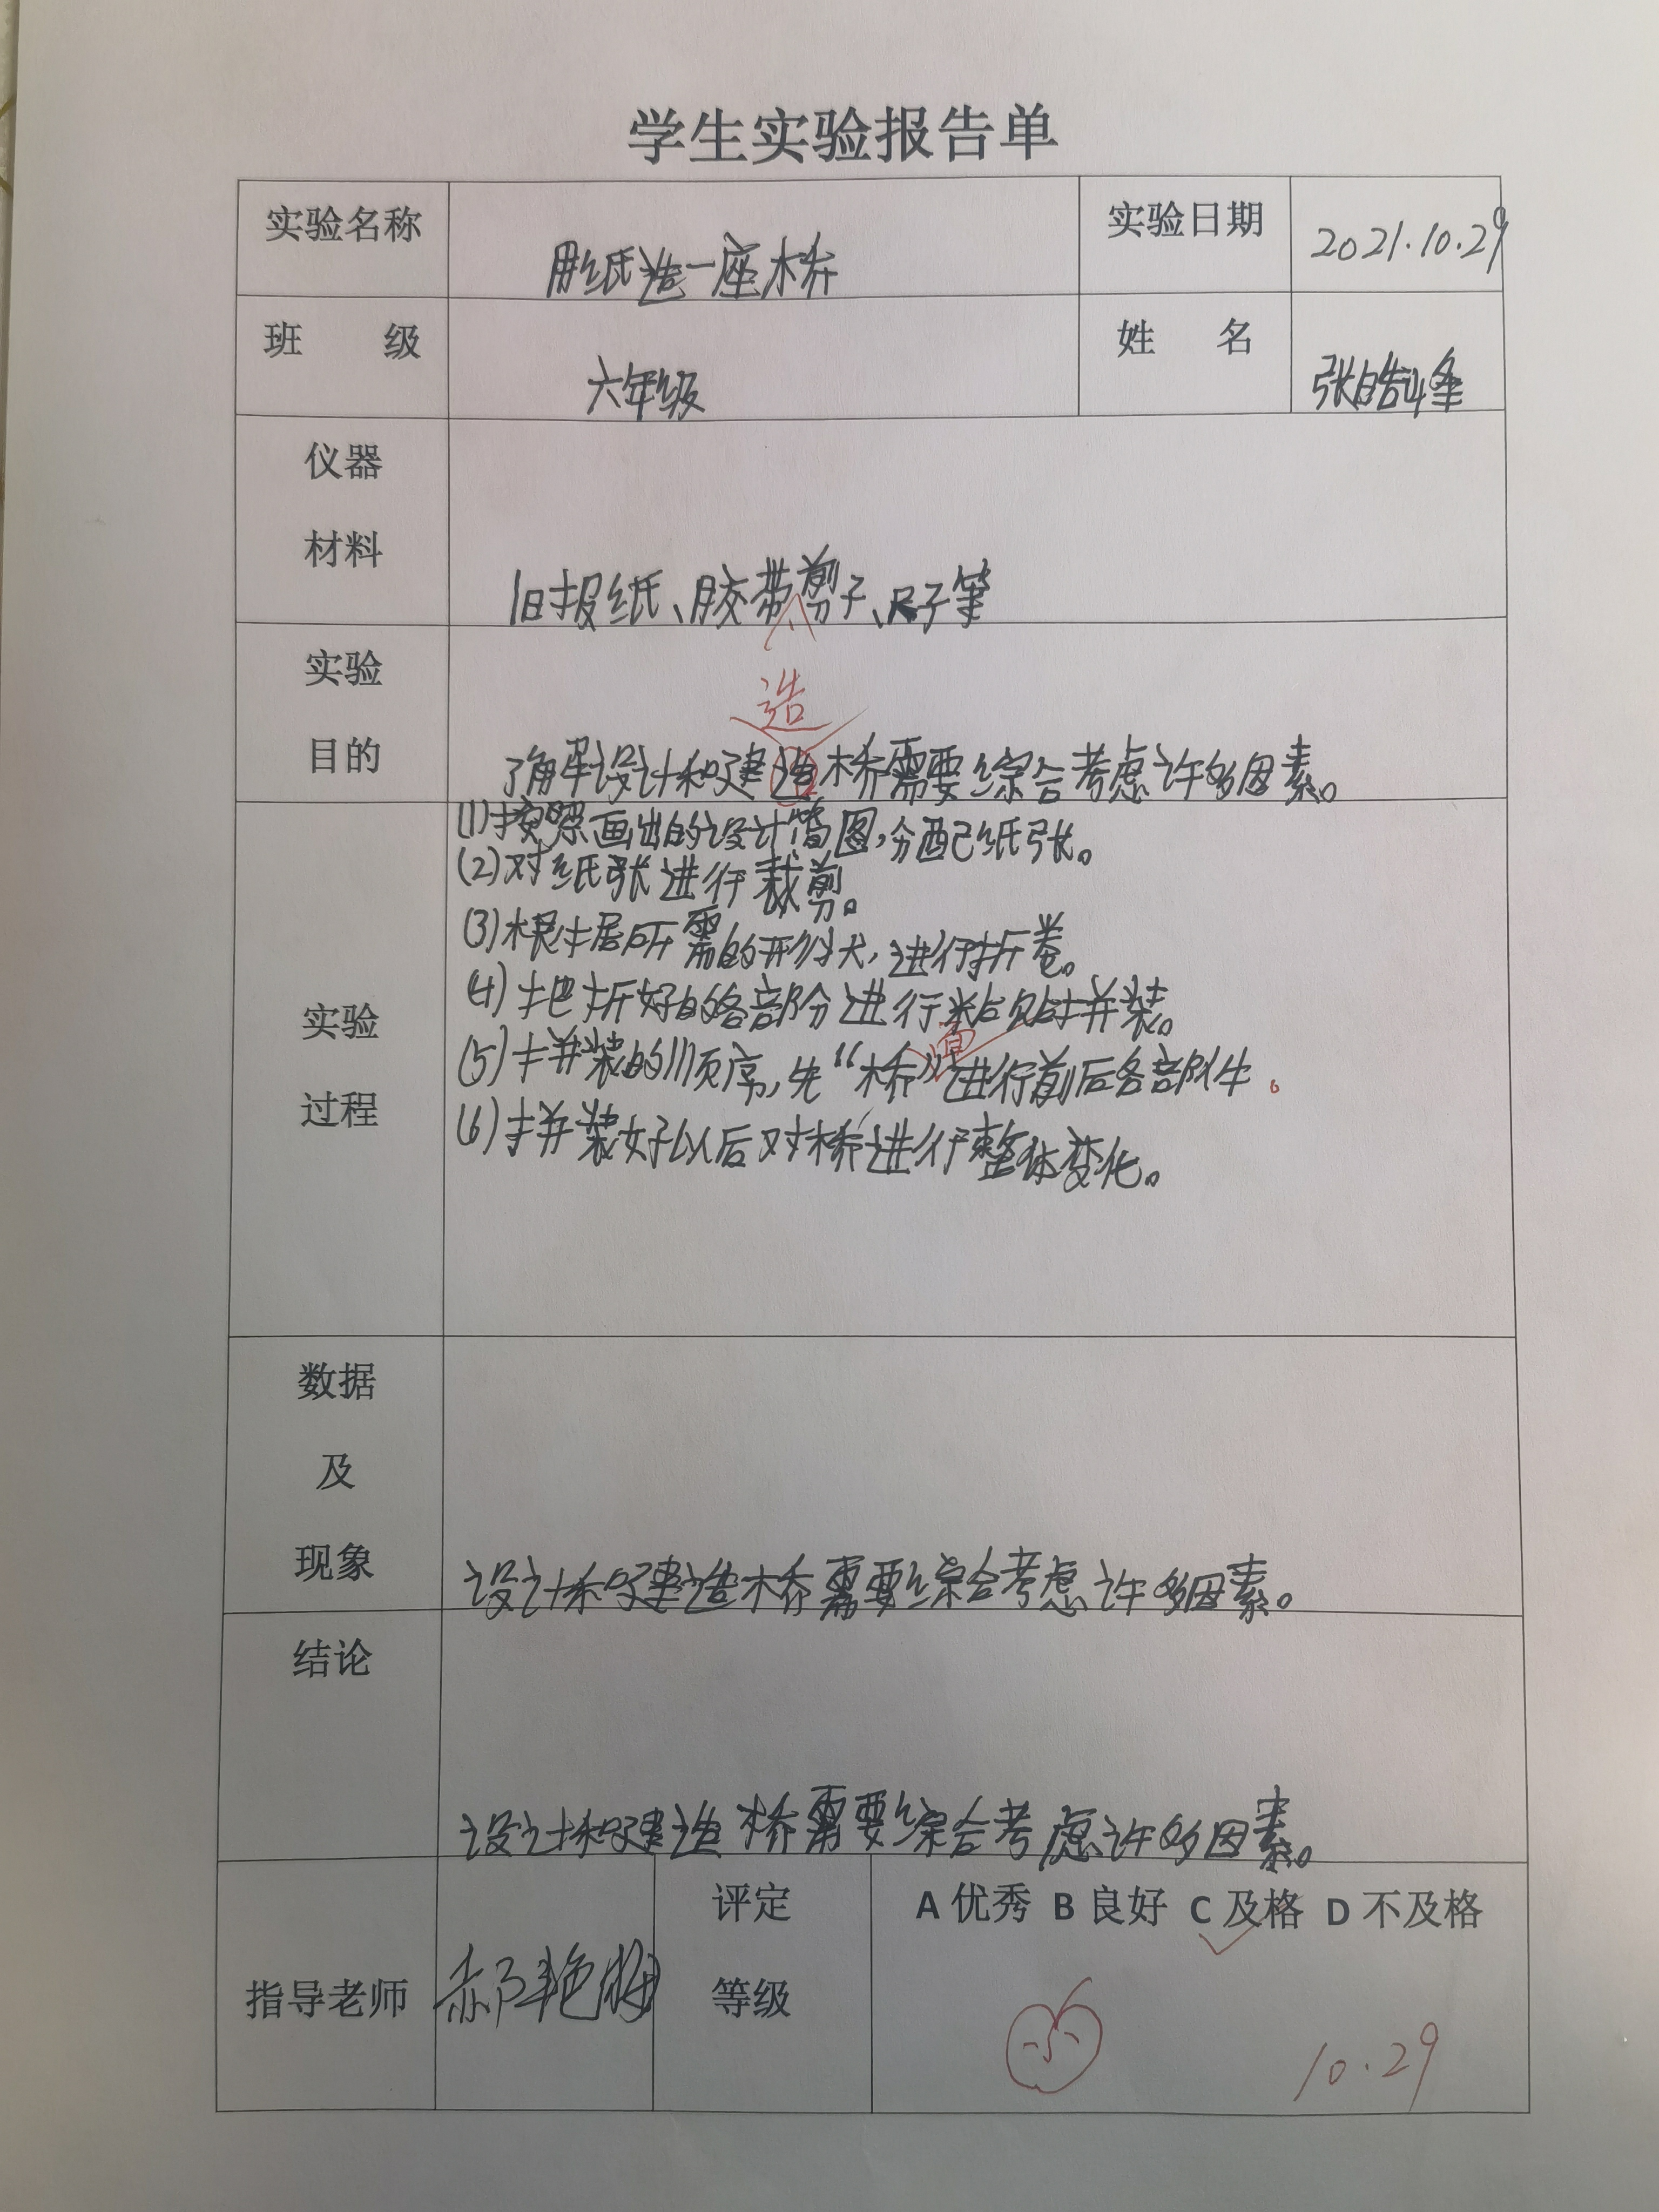 学生实验报告单
实验名称 用纸造一座桥 实验日期 2021.10.29
班 级 六年级 姓 名 张皓峰
仪器
材料
旧报纸、胶带剪子、尺子笔
实验
目的
造
了解设计和建造桥需要综合考虑许多因素。
实验
过程
(1)按照画出的设计简图,分配已纸张。
(2)对纸张进行裁剪。
(3)根据所需的形状,进行折卷。
(4)把折好的各部份进行粘贴拼装。
(5)拼装的顺序,先“桥”进行前后各部件。
(6)拼装好以后对桥进行整体变化。
数据
及
现象
设计和建造桥需要综合考虑许多因素。
结论
设计和建造桥需要综合考虑许多因素。
指导老师 郝艳梅
评定
等级
A 优秀 B 良好 C 及格 D 不及格
10.29